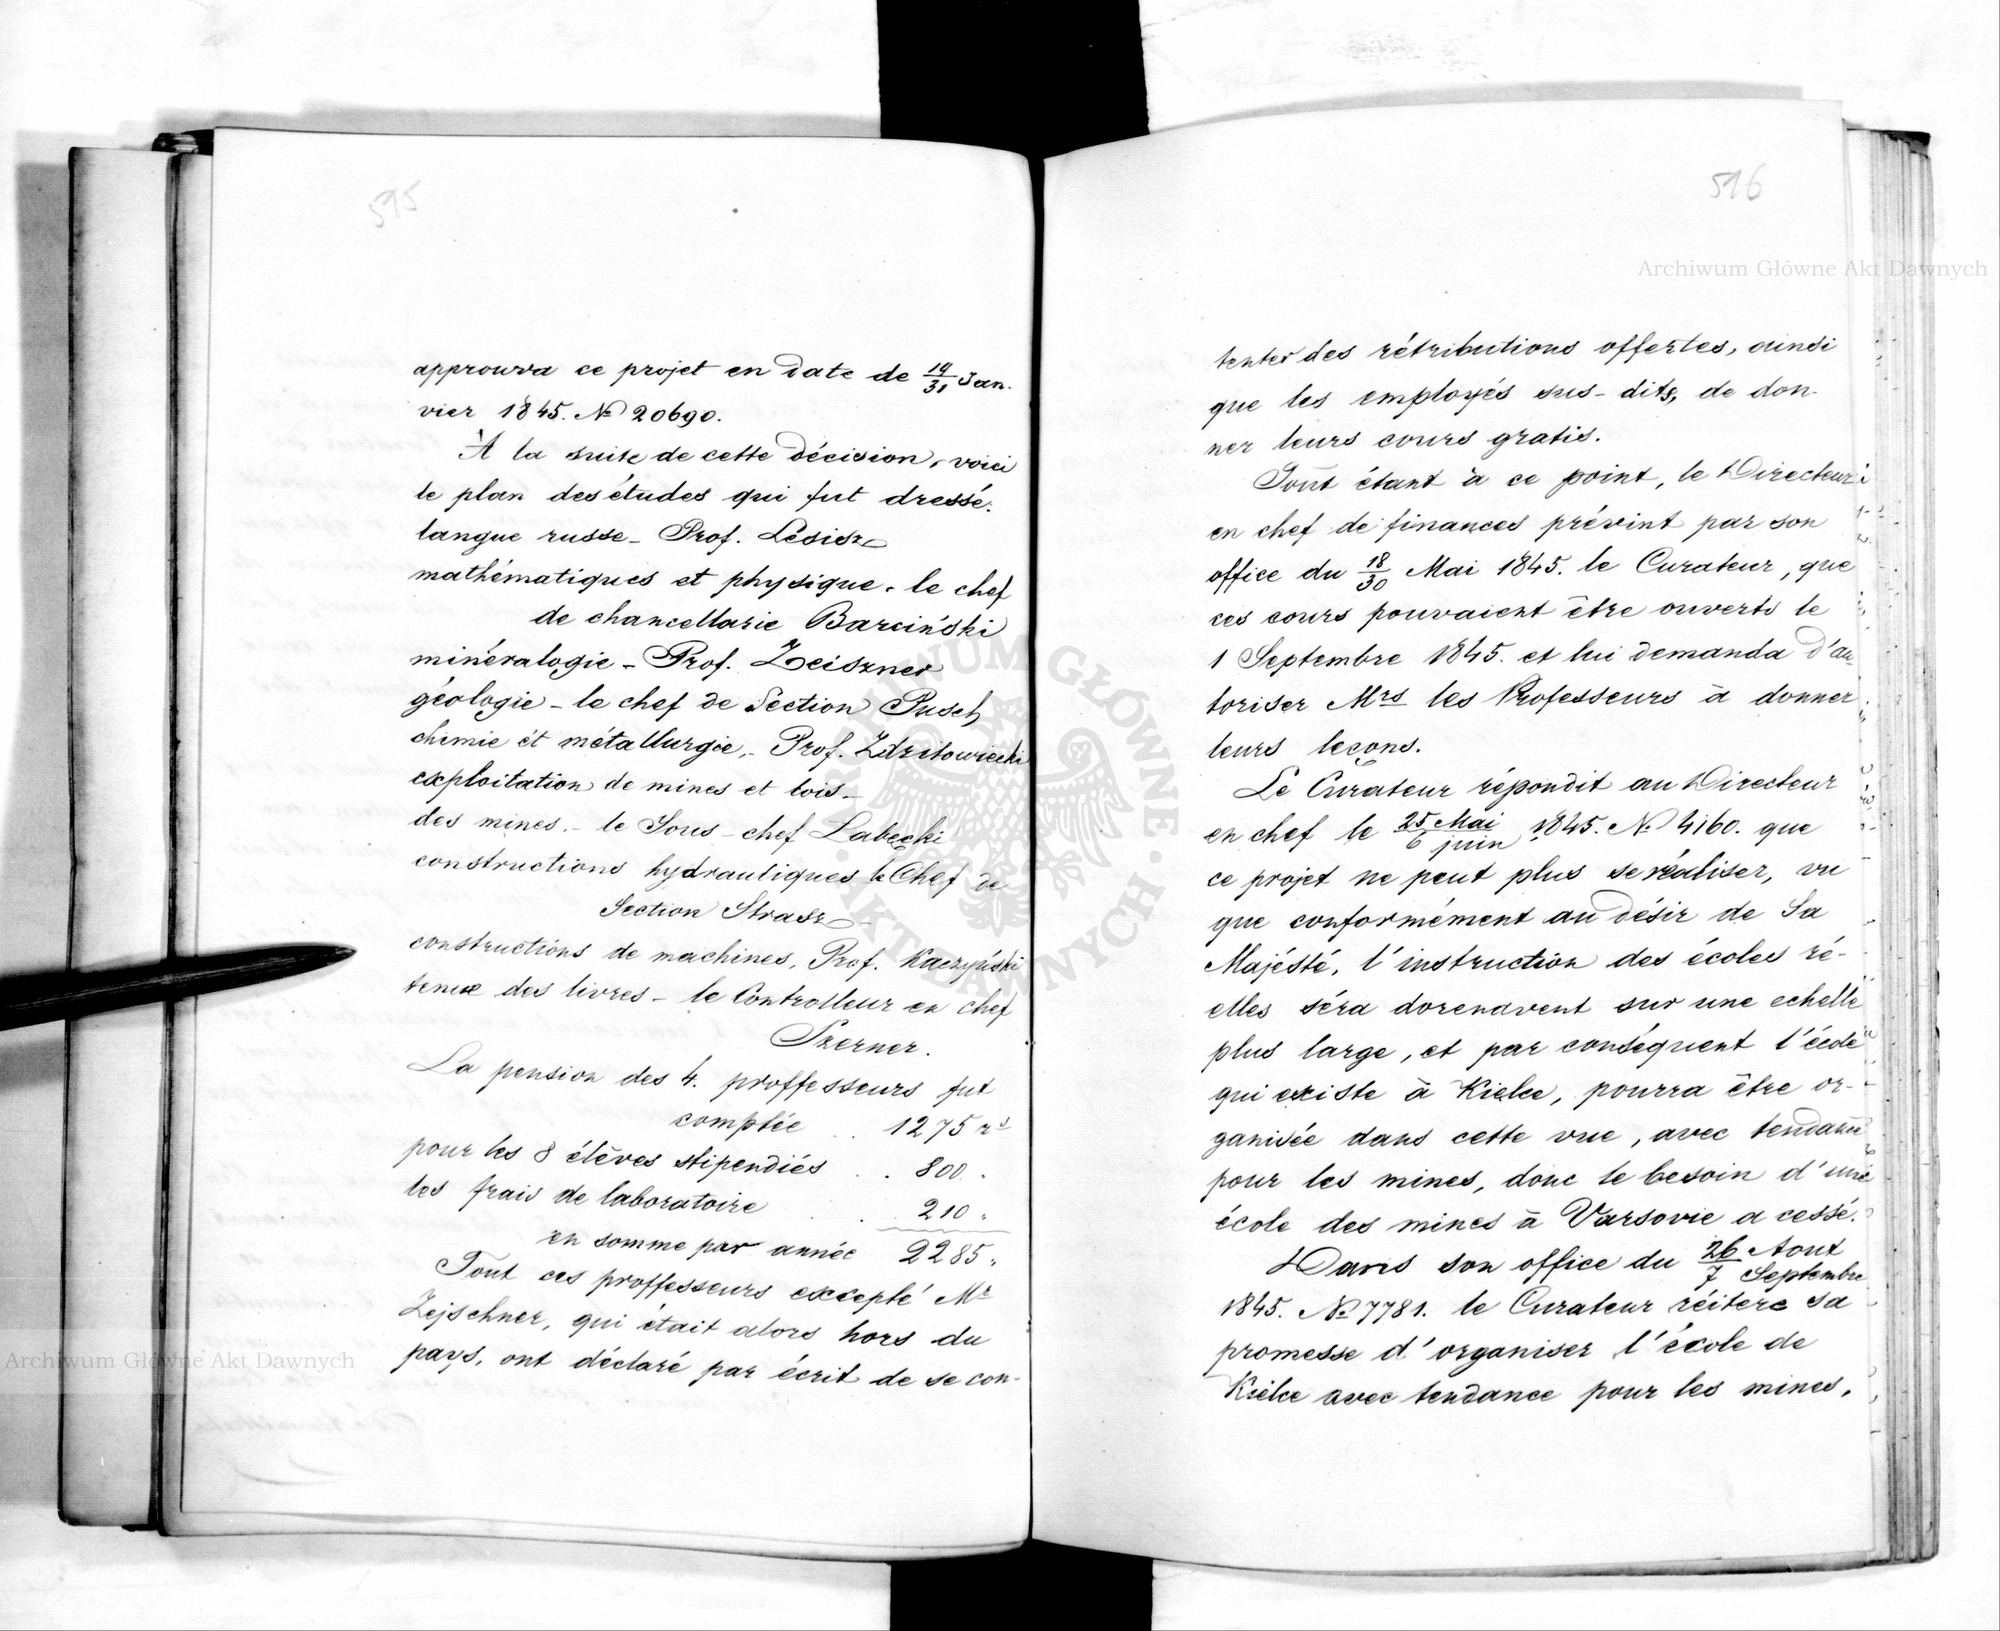 515
approuva ce projet en date de 19/31 Jan.
vier 1845. № 20690.
À la suite de cette décision, voici
le plan des études qui fut dressé.
langue russe - Prof. Lésisz
mathématiques et physique - le chef
de chancellarie Barciński
minéralogie - Prof. Zeiszner
géologie - le chef de Section Pusch
chimie et métallurgie, - Prof. Zdzitowiecki
exploitation de mines et lois -
des mines. - le Sous-chef Łabęcki
constructions hydrauliques le Chef de
Section Strasz -
constructions de machines, Prof. Kaczyński
tenue des livres - le Controlleur en chef
Pzerner.
La pension des 4. proffesseurs fut
comptée . . 1275 rs
pour les 8 élèves stipendiés . . 800 "
les frais de laboratoire . . 210 "
en somme par année 2285 "
Tout ces proffesseurs excepté Mr
Zejschner, qui était alors hors du
pays, ont déclaré par écrit de se con-
516
tenter des rétributions offertes, ainsi
que les employés sus-dits, de don-
ner leurs cours gratis.
Tout étant à ce point, le Directeur
en chef de finances prévint par son
office du 18/30 Mai 1845. le Curateur, que
ces cours pouvaient être ouverts le
1 Septembre 1845. et lui demanda d'au
toriser Mrs les Professeurs à donner
leurs leçons.
Le Curateur répondit au Directeur
en chef le 25 Mai/6 juin 1845. № 4160. que
ce projet ne peut plus se réaliser, vu
que conformément au désir de Sa
Majésté, l'instruction des écoles ré-
elles séra dorenavent sur une echelle
plus large, et par conséquent l'école
qui existe à Kielce, pourra être or-
ganisée dans cette vue, avec tendance
pour les mines, donc le besoin d'une
école des mines à Varsovie a cessé.
Dans son office du 26 Aout/7 Septembre
1845. № 7781. le Curateur réitere sa
promesse d'organiser l'école de
Kielce avec tendance pour les mines,
Archiwum Główne Akt Dawnych
Archiwum Główne Akt Dawnych
ARCHIWUM GŁÓWNE · AKT DAWNYCH ·